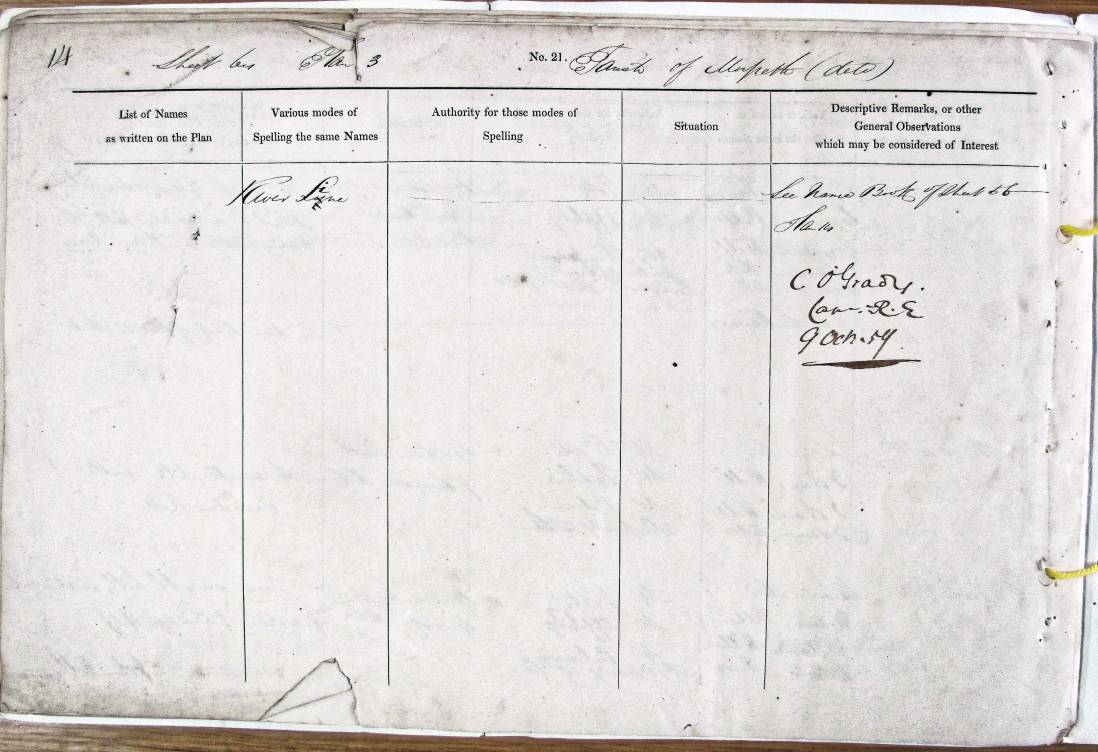 14 Sheet Plan 3 No. 21. Parish of Morpeth (deto)
List of Names
as written on the Plan
Various modes of
Spelling the same Names
Authority for those modes of
Spelling
Situation
Descriptive Remarks, or other
General Observations
which may be considered of Interest
River Line
See Name Book of Sheet
C O'Grady.
R.E
9 Octr. 59.